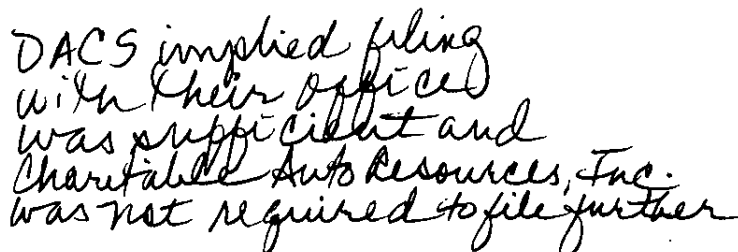 DACS implied filing
with their office
was sufficient and
Charitable Auto Resources, Inc.
was not required to file further